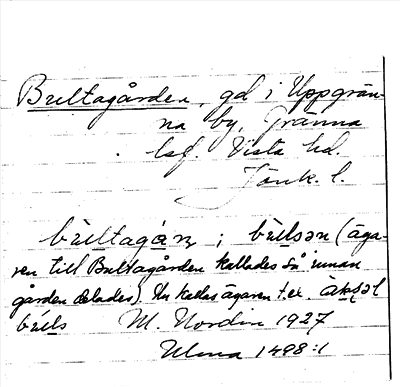 Bultagården, gd i Uppgrän-
na by, Gränna
lsf. Vista hd.
Jönk. l.
bùltagáɳ ; bùlsən (äga-
ren till Bultagården kallades så innan
gården delades). Nu kallas ägaren t. ex. àksəl
búls M. Nordin 1927
Ulma 1498:1